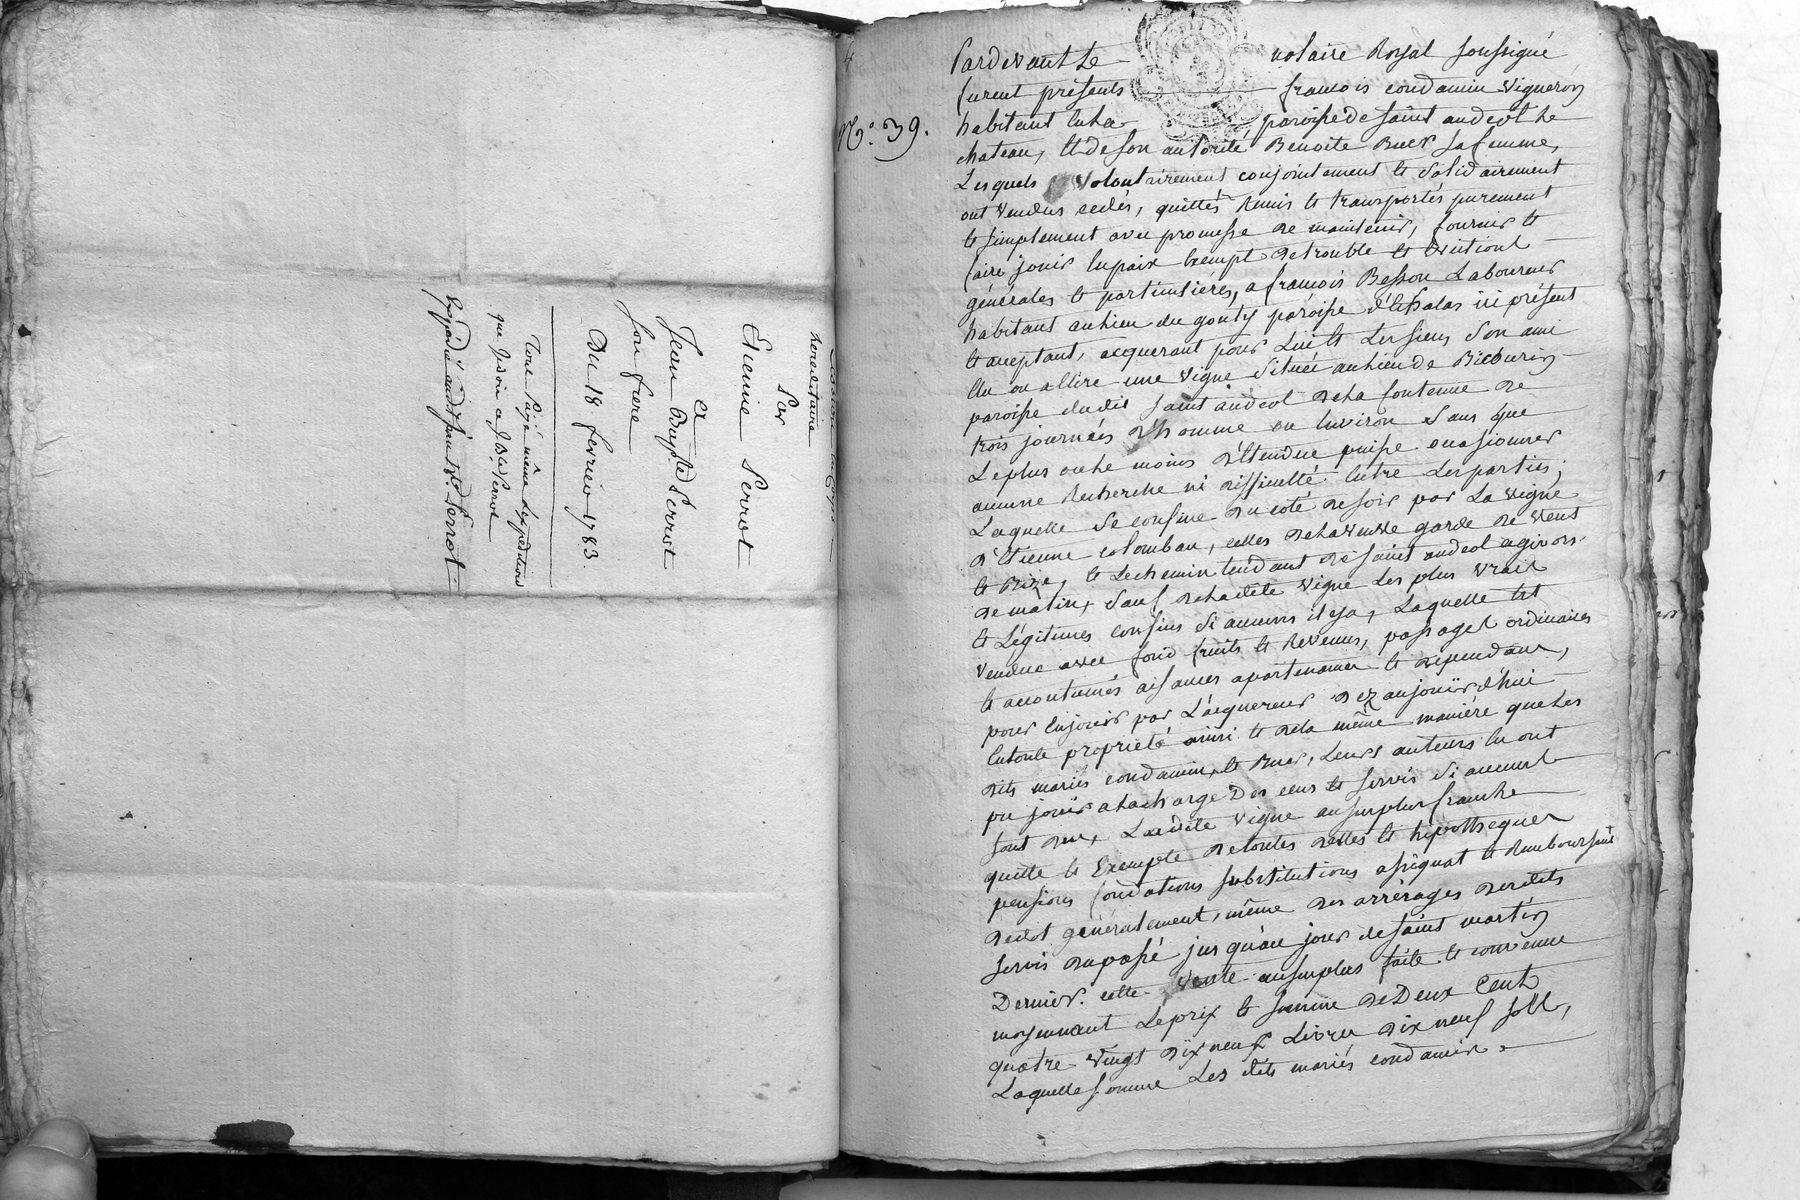 hereditaire
Par
Etienne Perrot
et
Jean Bapt.te Perrot
Son frere
Du 18 fevrier 1783.
Tout Payé même l'expedition
que Judoin a J. B.te Perrot
Expedié audit Jean B.te Perrot
4
N.o 39.
Pardevant Le notaire Royal soussigné
furent présents francois condamin vigneron
habitant en la paroisse de saint andeol le
chateau, et de son autorité Benoite Buer sa femme,
Lesquels volontairement conjointement et solidairement
ont vendus cedés, quittés remis et transportés purement
et simplement avec promesse de maintenir, fournir et
faire jouir en paix exempt de trouble et evictions
générales et particulières, a francois Besson Laboureur
habitant au lieu du gouty paroisse d'Echalas ici présent
et acceptant, acquerant pour Lui et Les siens son ami
élu ou a elire une vigne située au lieu de
paroisse dudit saint andeol de la contenue de
trois journées d'homme ou environ sans que
Le plus ou le moins d'étendue puisse occasionner
aucune Recherche ni difficulté entre Les parties;
Laquelle se confine du coté de soir par La vigne
d'Etienne colomban, celles de la veuve garde de vent
et Bize, et Le chemin tendant de saint andeol a givors
de matin, sauf de ladite vigne Les plus vrais
et Légitimes confins si aucuns il y a, Laquelle est
vendue avec fond fruits et Revenus, passages ordinaires
et accoutumés aisances apartenances et dépendances,
pour En jouir par L'acquereur dez aujourd'hui
en toute propriété ainsi et de la même manière que Les
dits mariés condamin et Buer, Leurs auteurs en ont
pu jouir a la charge Des cens et servis si aucuns
sont dus, Ladite vigne au surplus franche
quitte et Exempte de toutes dettes et hipotheques
pensions fondations substitutions assignat et Remboursement
de dot généralement, même des arrérages desdits
servis du passé jusqu'au jour de saint martin
Dernier. cette vente au surplus faite et convenue
moyennant Le prix et somme de Deux Cent
quatre vingt dix neuf Livres dix neuf sols,
Laquelle somme Les dits mariés condamin